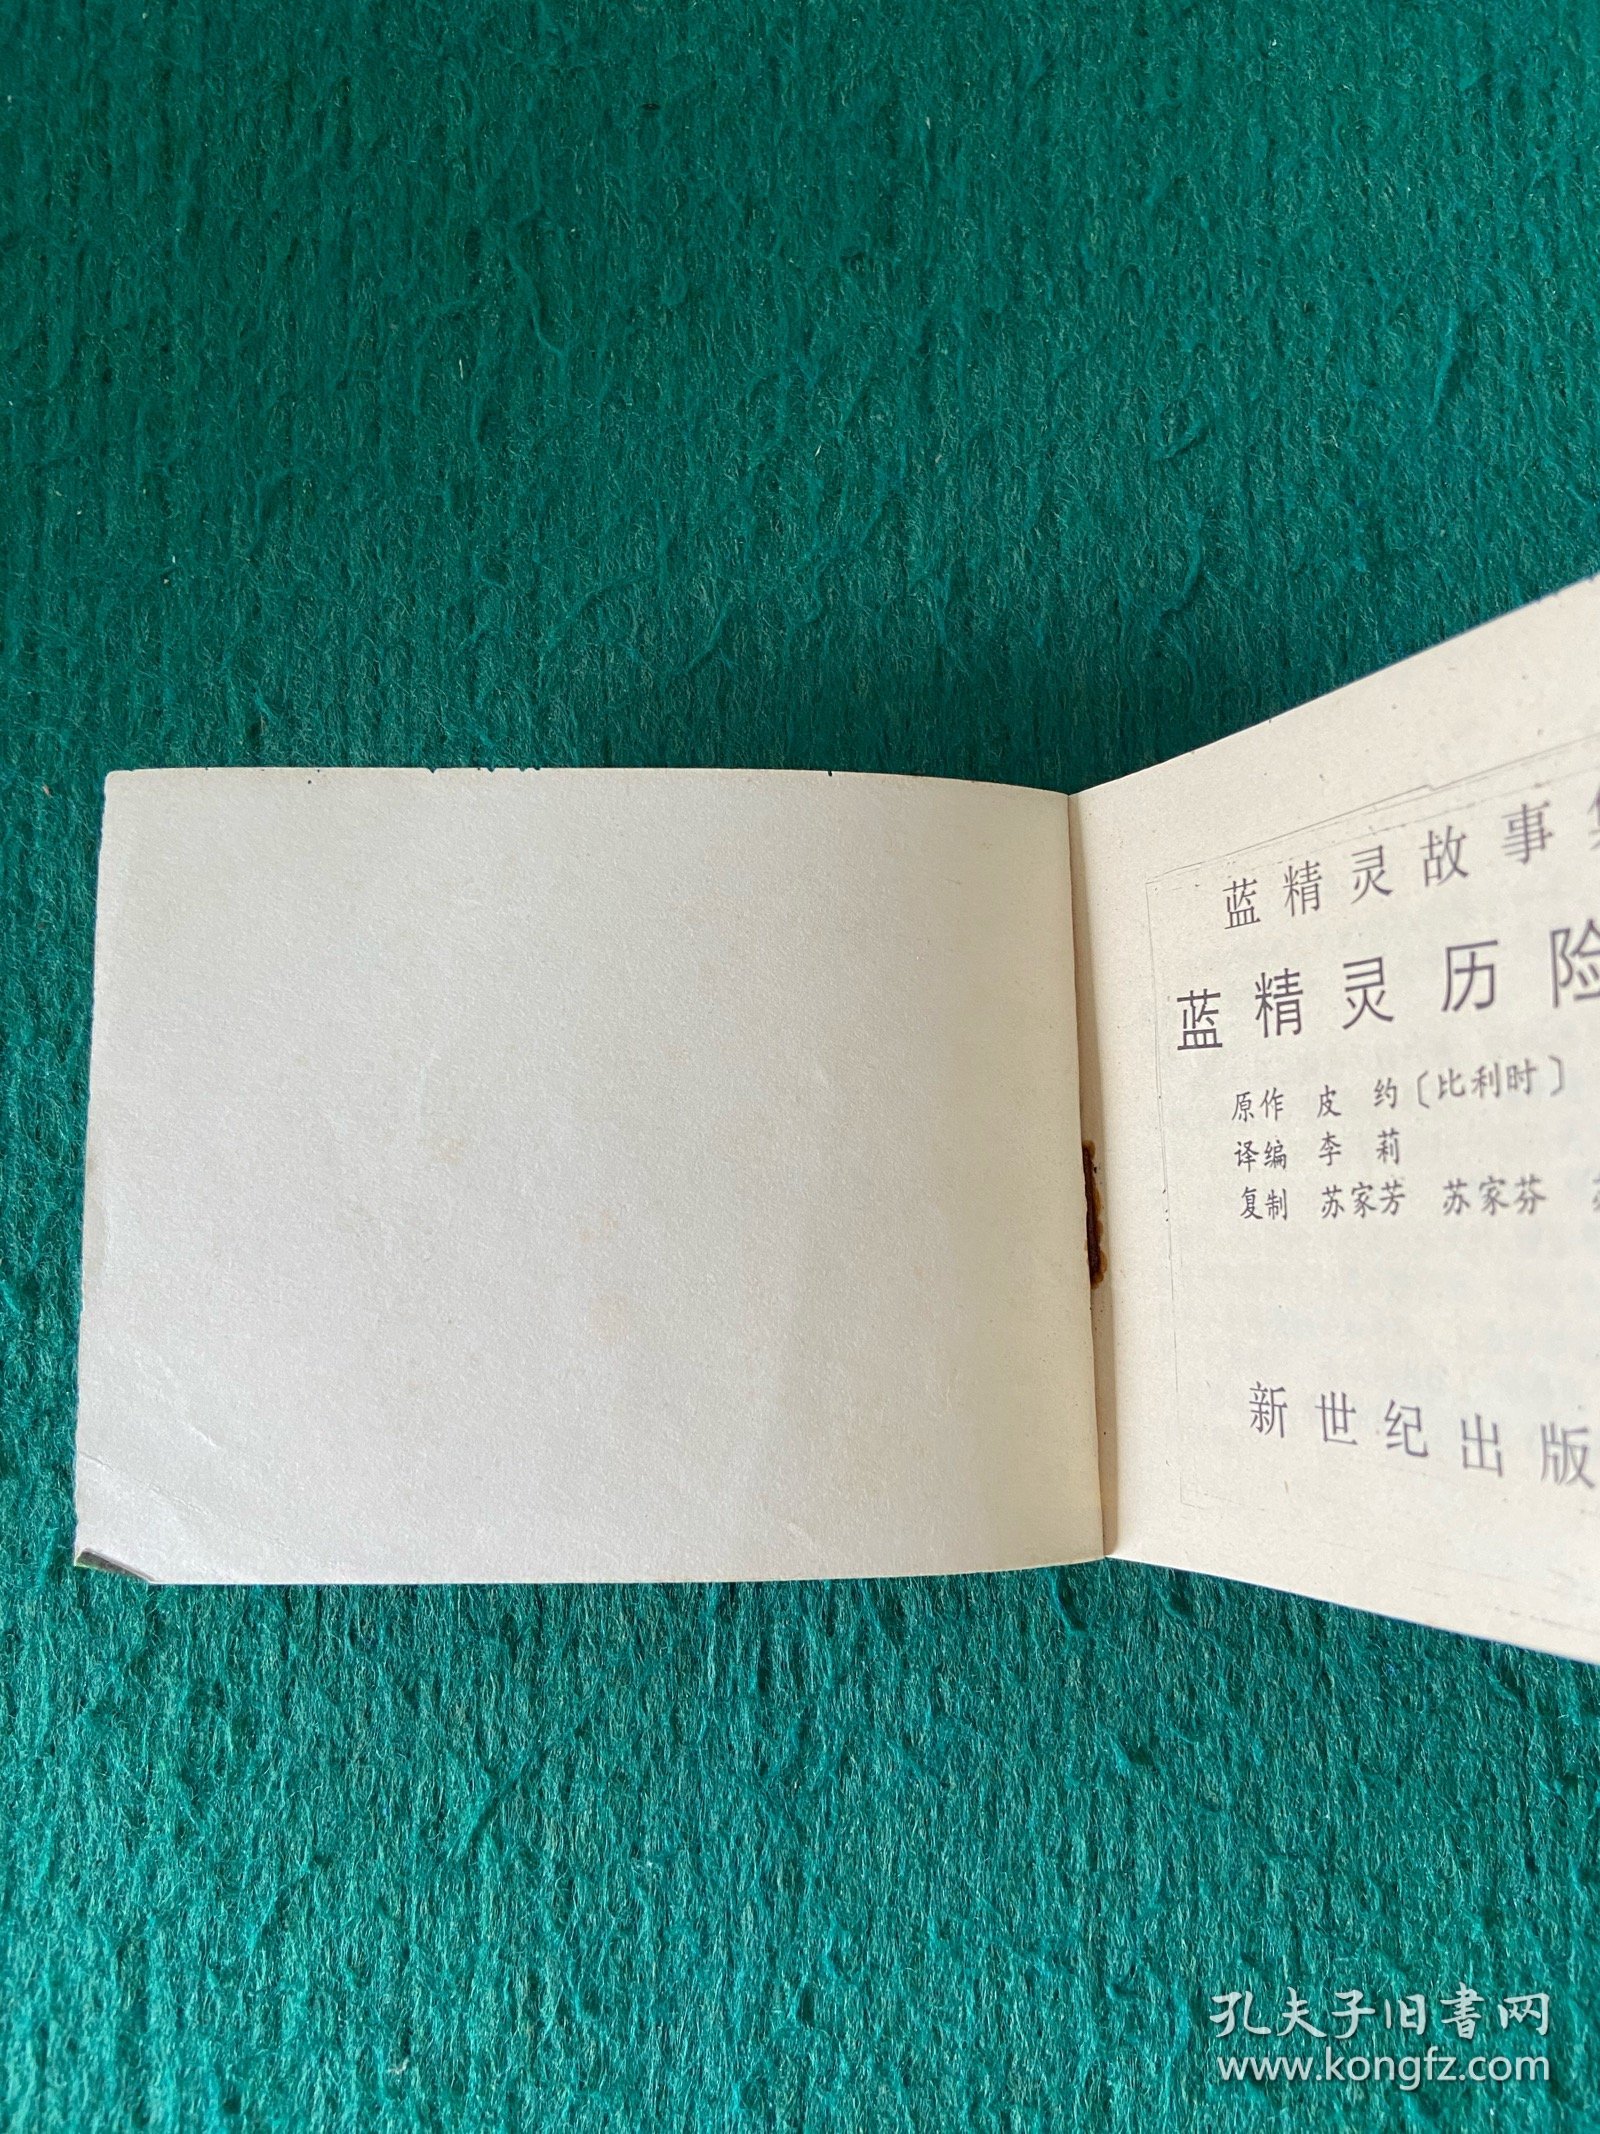 蓝精灵故事集
蓝精灵历险
原作 皮 约〔比利时〕
译编 李 莉
复制 苏家芳 苏家芬
新世纪出版
孔夫子旧書网
www.kongfz.com